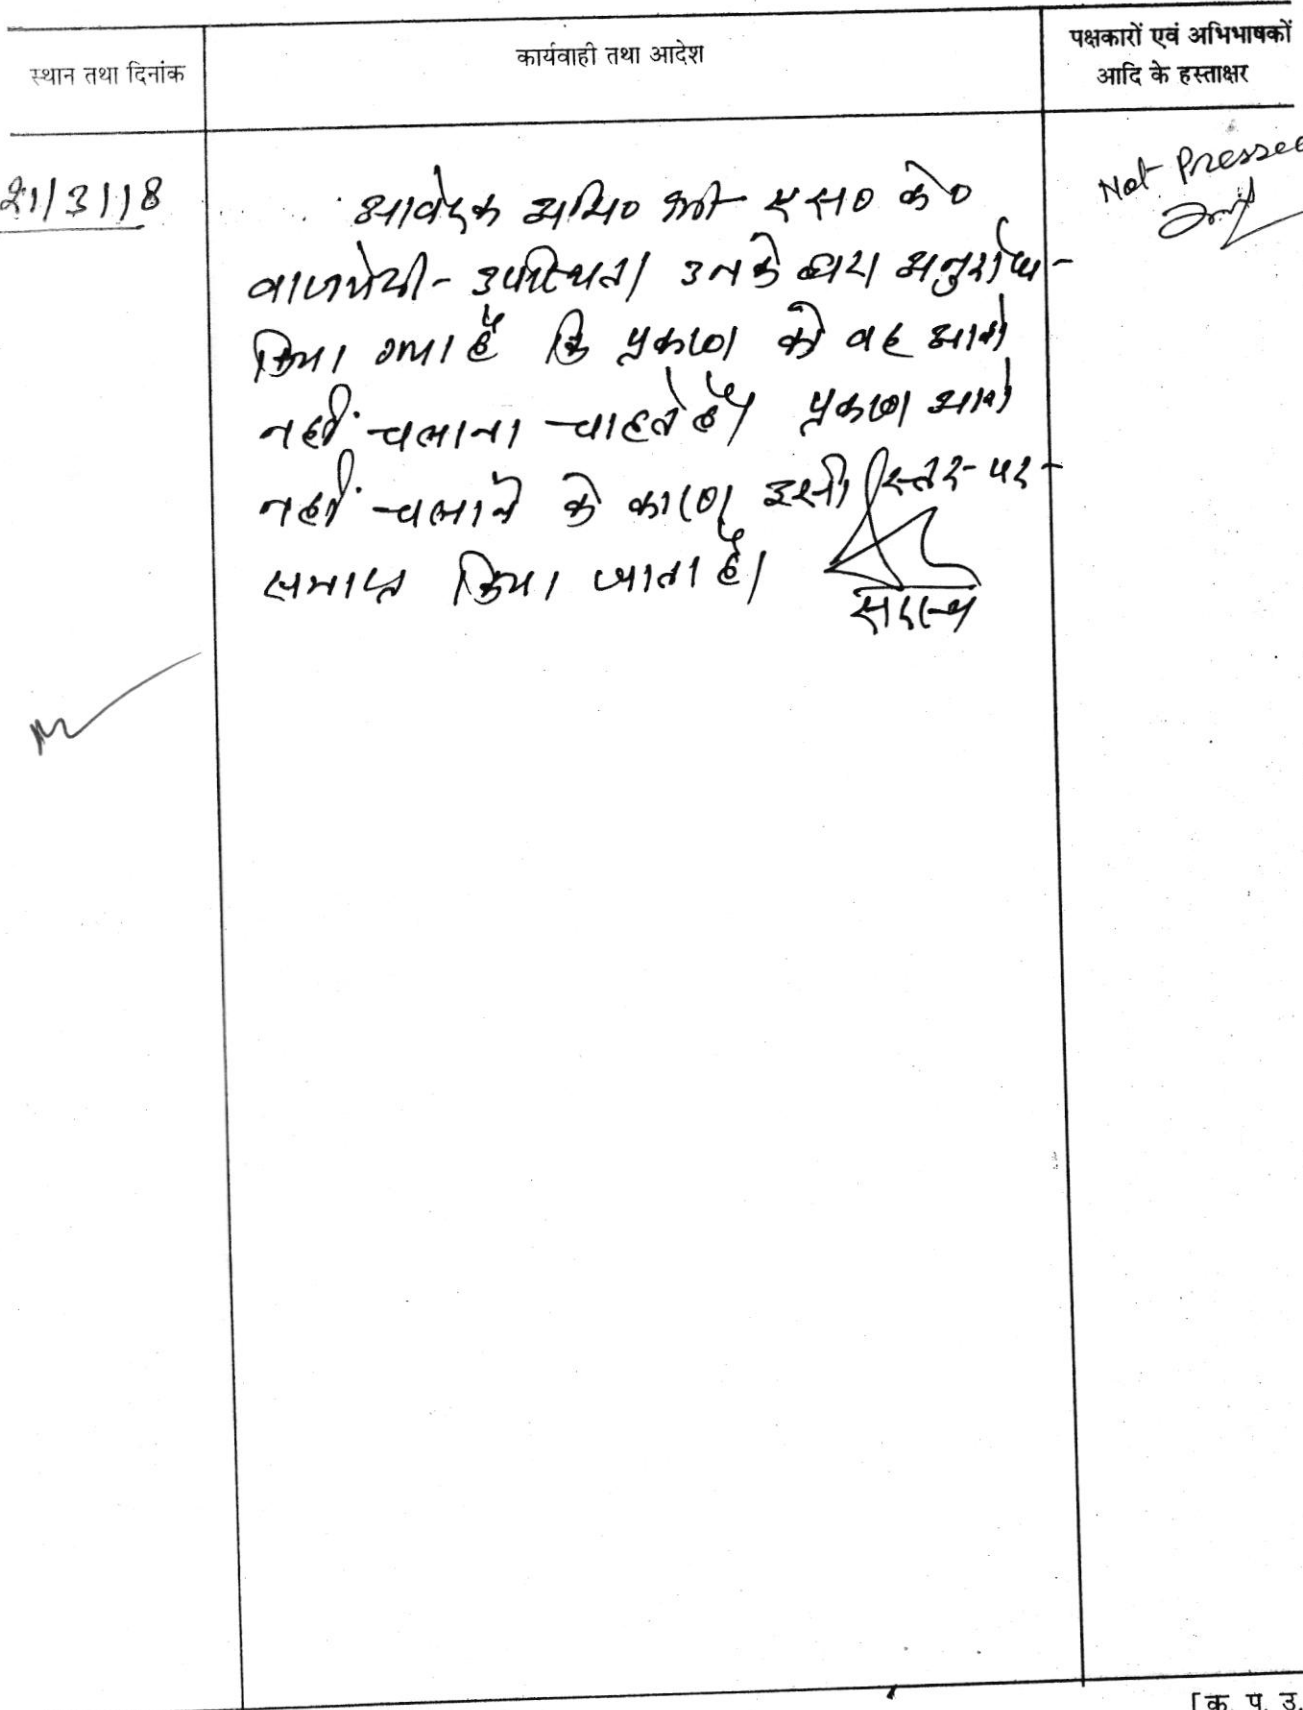 स्थान तथा दिनांक
कार्यवाही तथा आदेश
पक्षकारों एवं अभिभाषकों
आदि के हस्ताक्षर
21/3/18
Not Pressed
आवेदक अभि0 श्री एस0 के0
वाजपेयी उपस्थित। उनके द्वारा अनुरोध
किया गया है कि प्रकरण को वह आगे
नहीं चलाना चाहते हैं। प्रकरण आगे
नहीं चलाने के कारण इसी स्तर पर
समाप्त किया जाता है।
सदस्य
[क. प. उ.